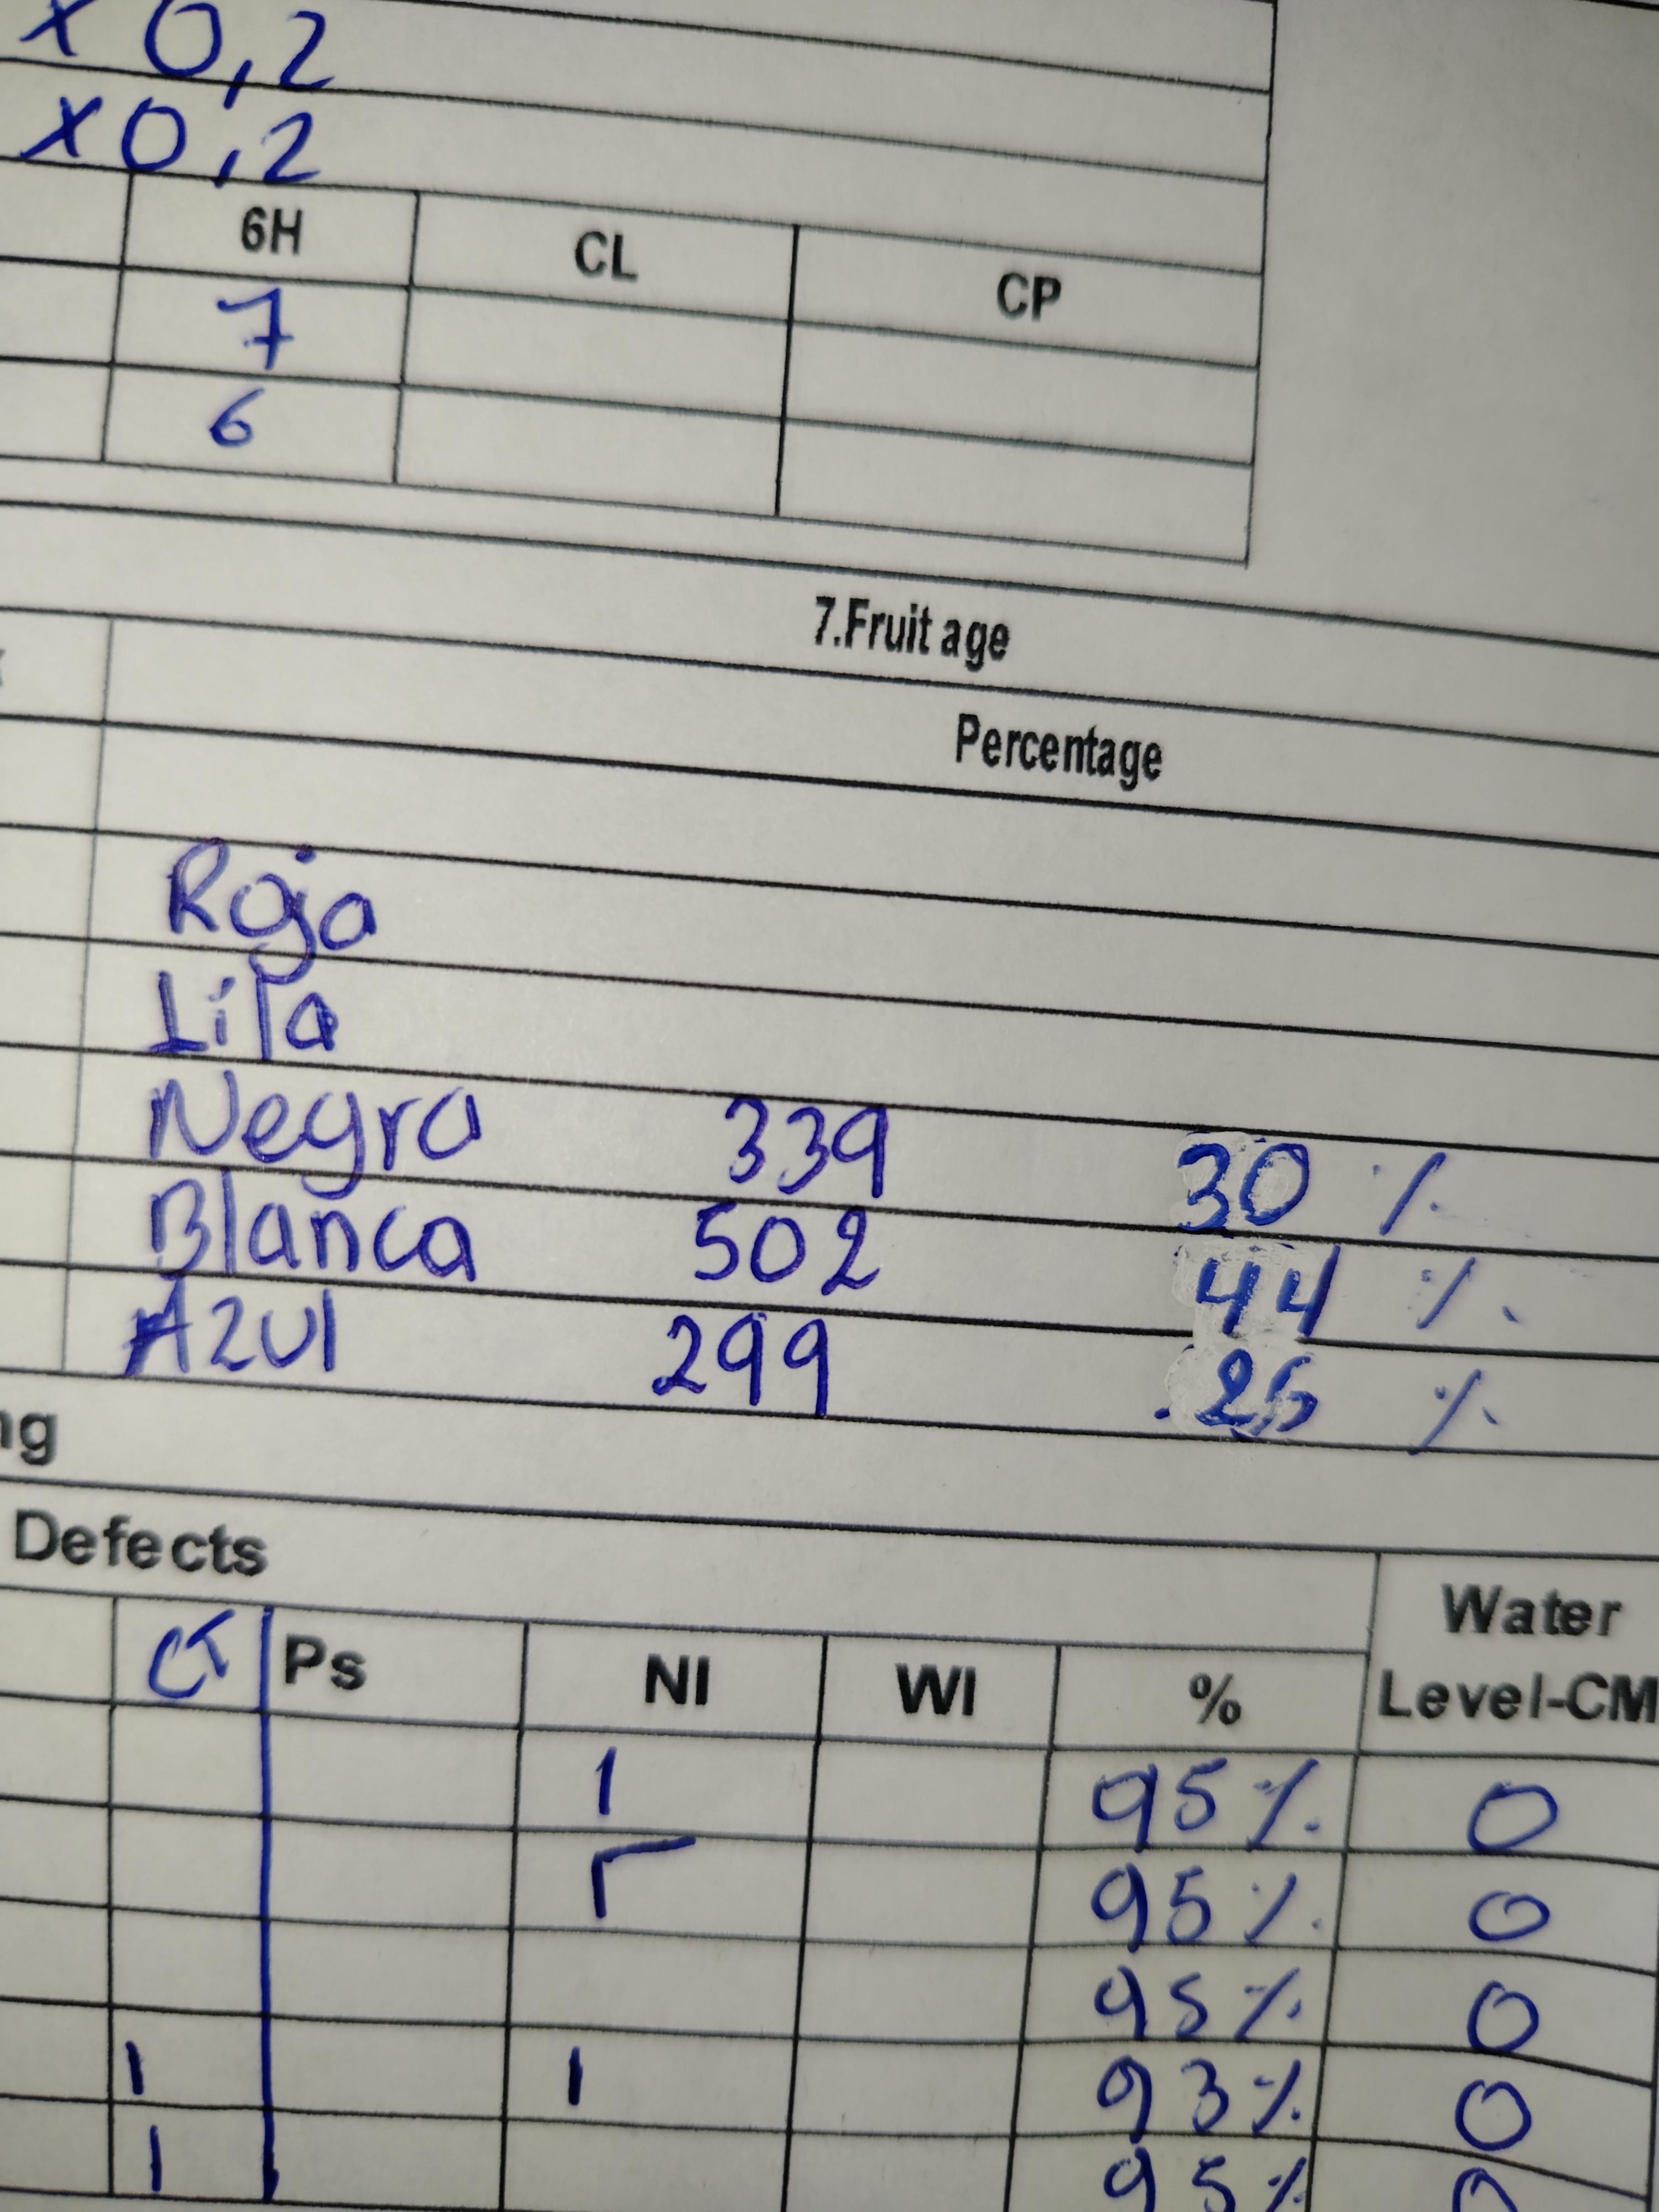 x 0,2
x 0,2
6H CL CP
7
6
7.Fruit age
Percentage
Roja
Lila
Negra 339 30 %
Blanca 502 44 %
Azul 299 26 %
ng
Defects Water
CT Ps NI WI % Level-CM
1 95% 0
95% 0
95% 0
1 1 93% 0
1 95% 0